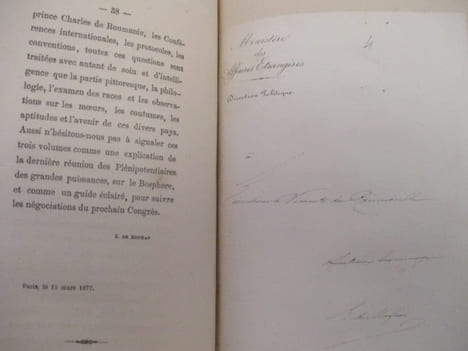 — 38 —
prince Charles de Roumanie, les Confé-
rences internationales, les protocoles, les
conventions, toutes ces questions sont
traitées avec autant de soin et d'intelli-
gence que la partie pittoresque, la philo-
logie, l'examen des races et les observa-
tions sur les mœurs, les coutumes, les
aptitudes et l'avenir de ces divers pays.
Aussi n'hésitons-nous pas à signaler ces
trois volumes comme une explication de
la dernière réunion des Plénipotentiaires
des grandes puissances, sur le Bosphore,
et comme un guide éclairé, pour suivre
les négociations du prochain Congrès.
E. DE
Paris, le 15 mars 1877.
Ministère
des
Affaires Etrangères
Direction Politique
Vicomte de